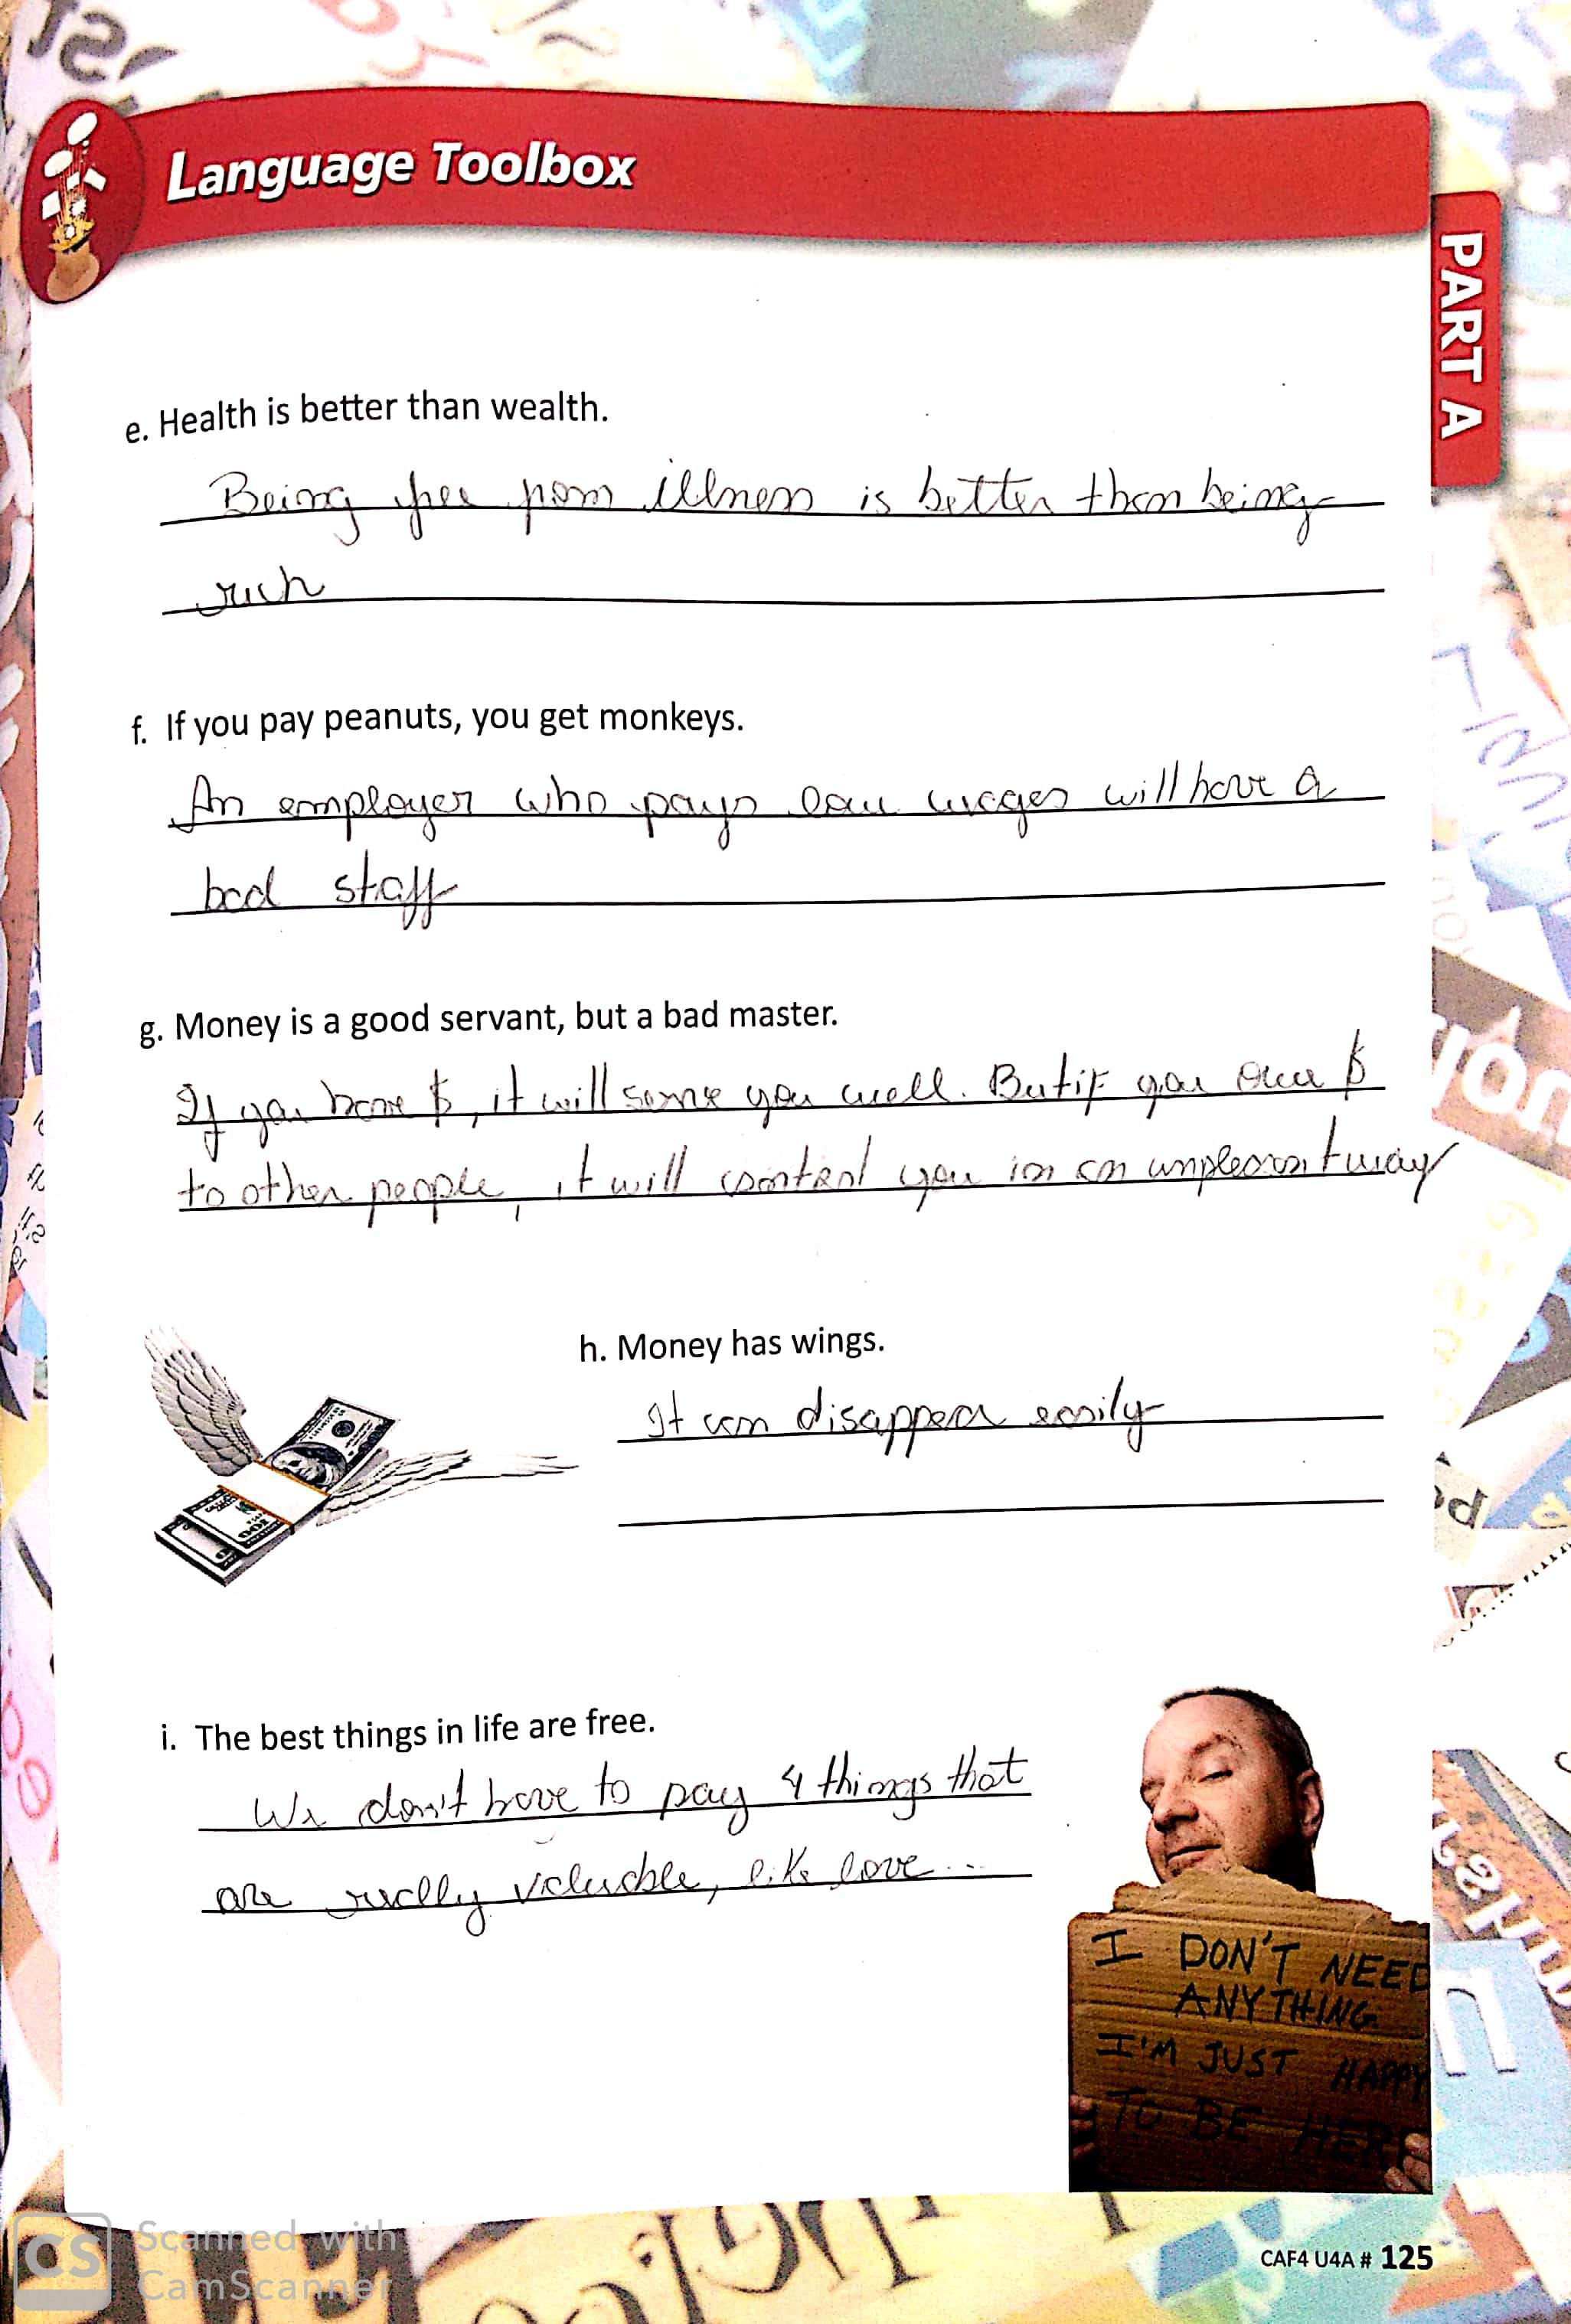 Language Toolbox
PART A
e. Health is better than wealth.
Being free from illness is better than being
rich
f. If you pay peanuts, you get monkeys.
An employer who pays low wages will have a
bad staff
g. Money is a good servant, but a bad master.
If you have $, it will serve you well. But if you owe $
to other people, it will control you in an unpleasant way
h. Money has wings.
It can disappear easily
i. The best things in life are free.
We don't have to pay 4 things that
are really valuable, like love...
I DON'T NEED
ANYTHING
I'M JUST HAPPY
TO BE HERE
CAF4 U4A # 125
CS
Scanned with
CamScanner